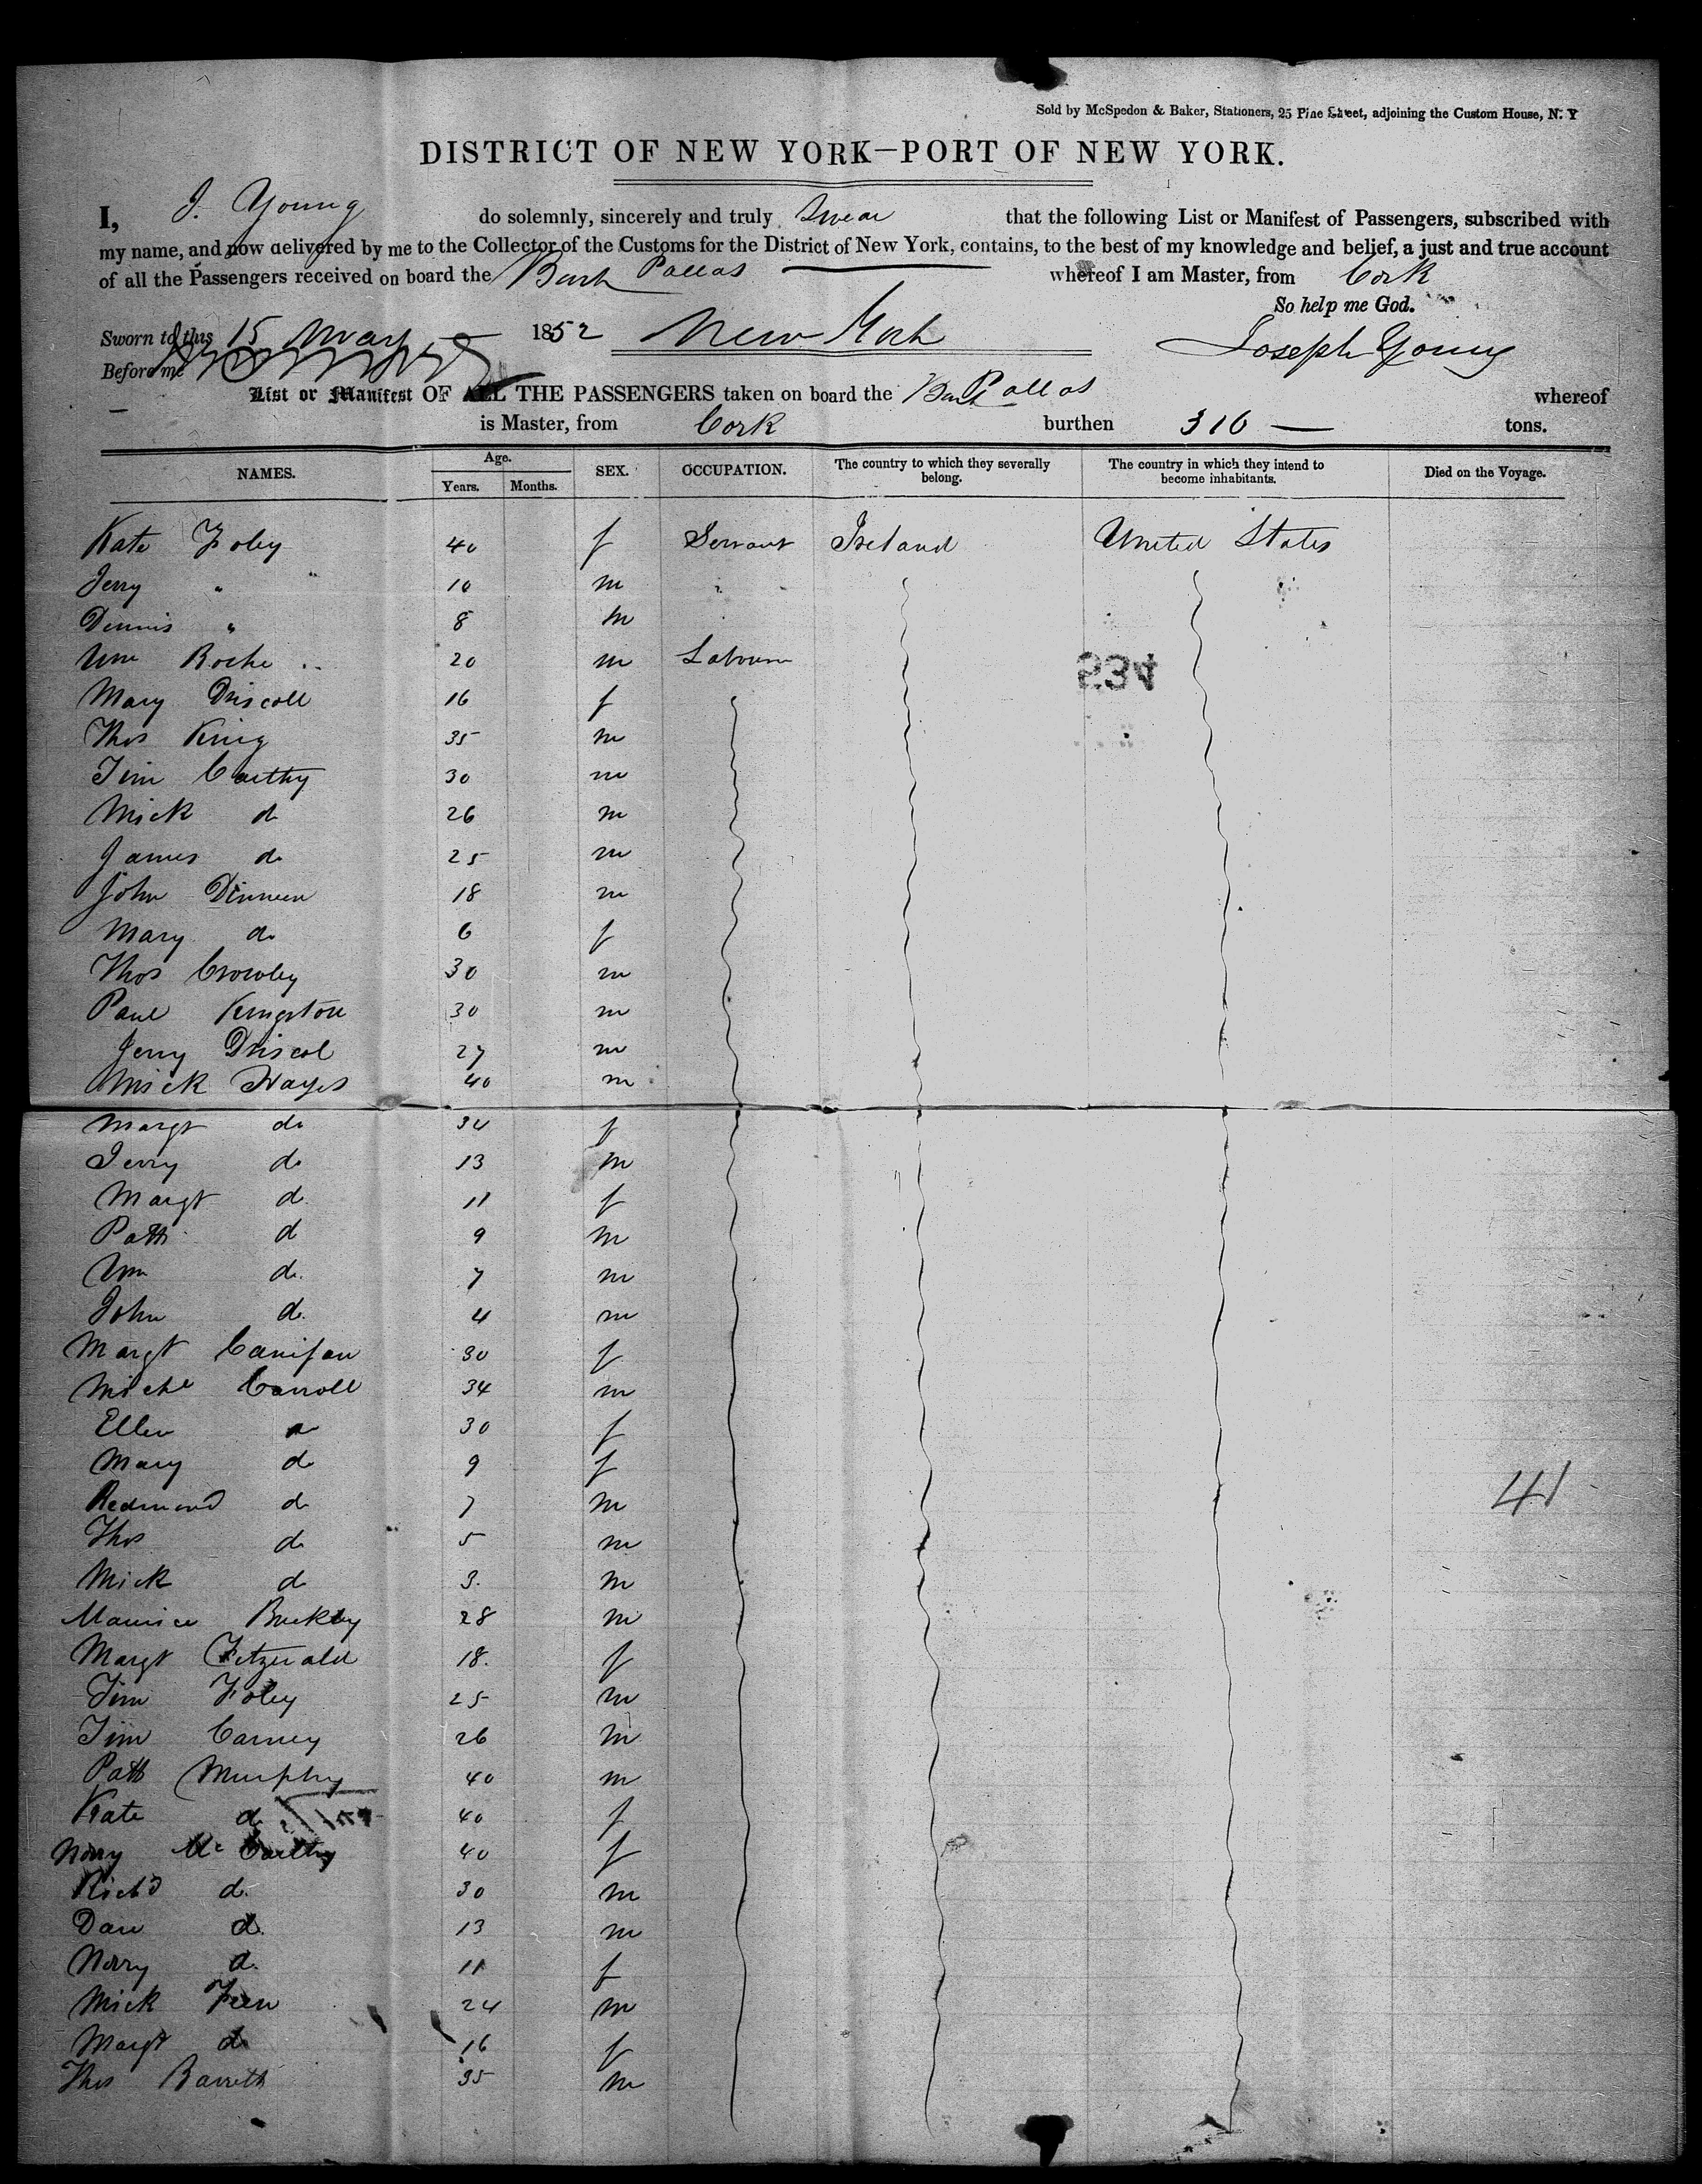 Sold by McSpedon & Baker, Stationers, 25 Pine Street, adjoining the Custom House, N. Y
DISTRICT OF NEW YORK—PORT OF NEW YORK.
I, J. Young do solemnly, sincerely and truly swear that the following List or Manifest of Passengers, subscribed with
my name, and now delivered by me to the Collector of the Customs for the District of New York, contains, to the best of my knowledge and belief, a just and true account
of all the Passengers received on board the Bark Pallas whereof I am Master, from Cork
So help me God.
Sworn to this 15 May 1852 New York Joseph Young
Before me
List or Manifest OF ALL THE PASSENGERS taken on board the Bark Pallas whereof
is Master, from Cork burthen 316 — tons.
NAMES. Age. Years. Months. SEX. OCCUPATION. The country to which they severally belong. The country in which they intend to become inhabitants. Died on the Voyage.
Kate Foley 40 f Servant Ireland United States
Jerry " 10 m
Dennis " 8 m
Wm Roche 20 m Labourer
534
Mary Driscoll 16 f
Thos King 35 m
Tim Carthy 30 m
Mick do 26 m
James do 25 m
John Dinneen 18 m
Mary do 6 f
Thos Crowley 30 m
Paul Kingston 30 m
Jerry Driscol 27 m
Mick Hayes 40 m
Margt do 34 f
Jerry do 13 m
Margt do 11 f
Patt do 9 m
Wm do 7 m
John do 4 m
Margt Canifan 30 f
Michl Carroll 34 m
Ellen do 30 f
Mary do 9 f
Redmond do 7 m
41
Thos do 5 m
Mick do 3 m
Maurice Buckley 28 m
Margt Fitzgerald 18 f
Tim Foley 25 m
Tim Carney 26 m
Patt Murphy 40 m
Kate do 40 f
Norry Mc Carthy 40 f
Richd do 30 m
Dan do 13 m
Norry do 11 f
Mick Feen 24 m
Margt do 16 f
Thos Barrett 35 m